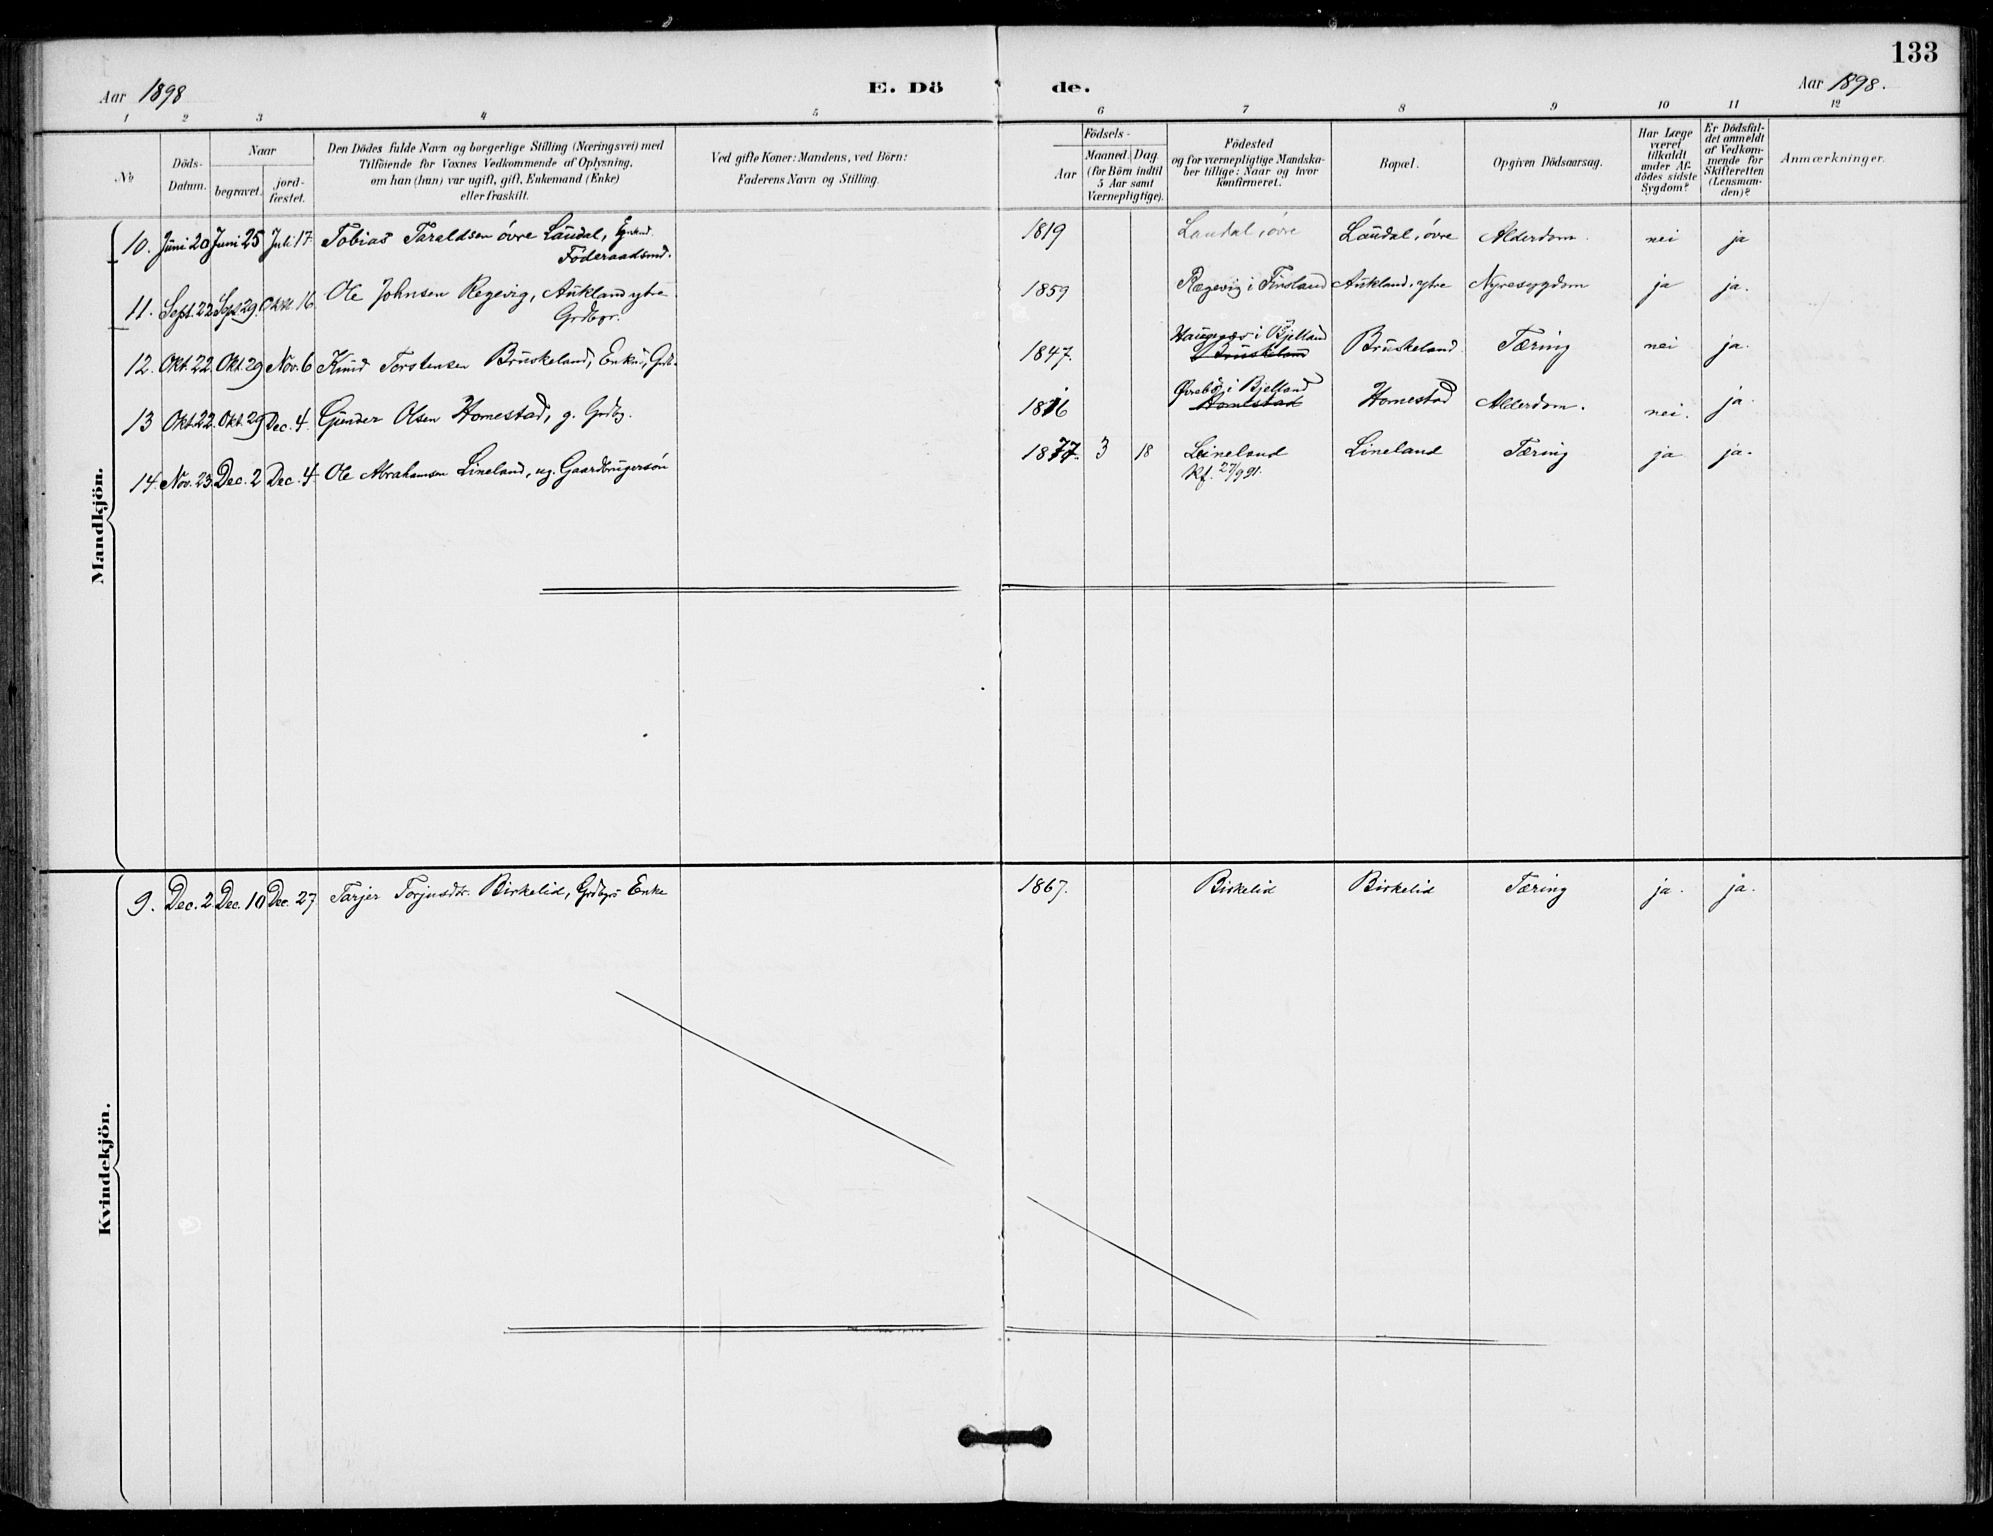 133
Aar 1898
E. Dö
de.
Aar 1898.
1 2 3 4 5 6 7 8 9 10 11 12
No
Döds-Datum.
Naar
begravet.
jord-fæstet.
Den Dödes fulde Navn og borgerlige Stilling (Næringsvei) med
Tilföiende for Voxnes Vedkommende af Oplysning,
om han (hun) var ugift, gift, Enkemand (Enke)
eller fraskilt.
Ved gifte Koner: Mandens, ved Börn:
Faderens Navn og Stilling.
Födsels-
Aar
Maaned. Dag.
(for Börn indtil
5 Aar samt
Værnepligtige).
Födested
og for værnepligtige Mandska-
ber tillige: Naar og hvor
konfirmeret.
Bopæl.
Opgiven Dödsaarsag.
Har Læge
været
tilkaldt
under Af-
dödes sidste
Sygdom?
Er Dödsfal-
det anmeldt
af Vedkom-
mende for
Skifteretten
(Lensman-
den)?
Anmærkninger.
Mandkjön.
10. Juni 20 Juni 25 Juli 17 Tobias Taraldsen övre Laudal, Enkmd. 1819 Laudal, övre Laudal, övre Alderdom. nei ja
Föderaadsmd.
11. Sept. 22 Sept. 29. Okt. 16. Ole Johnsen Regevig, Aukland ytre 1859 Rægevig i Finsland Aukland, ytre Nyresygdom ja ja.
Grdbgr.
Haugnæs i Bjelland
12. Okt. 22. Okt. 29 Nov. 6 Knud Torstensen Bruskeland, Enkm, Grdb. 1847. Bruskeland Bruskeland Tæring nei ja.
Øvrebö i Bjelland
13 Okt. 22. Okt. 29 Dec. 4. Gunder Olsen Homestad, g. Grdbg. 1816 Homestad Homestad Alderdom. nei. ja.
14. Nov. 23. Dec. 2 Dec. 4 Ole Abrahamsen Lineland, ug. Gaardbrugersön 1877. 3 18 Lineland Lineland Tæring ja ja.
Kf. 27/9 91.
Kvindekjön.
9. Dec. 2 Dec. 10 Dec. 27 Tarjer Torjusdtr. Birkelid, Grdbgrs Enke 1867. Birkelid Birkelid Tæring ja. ja.